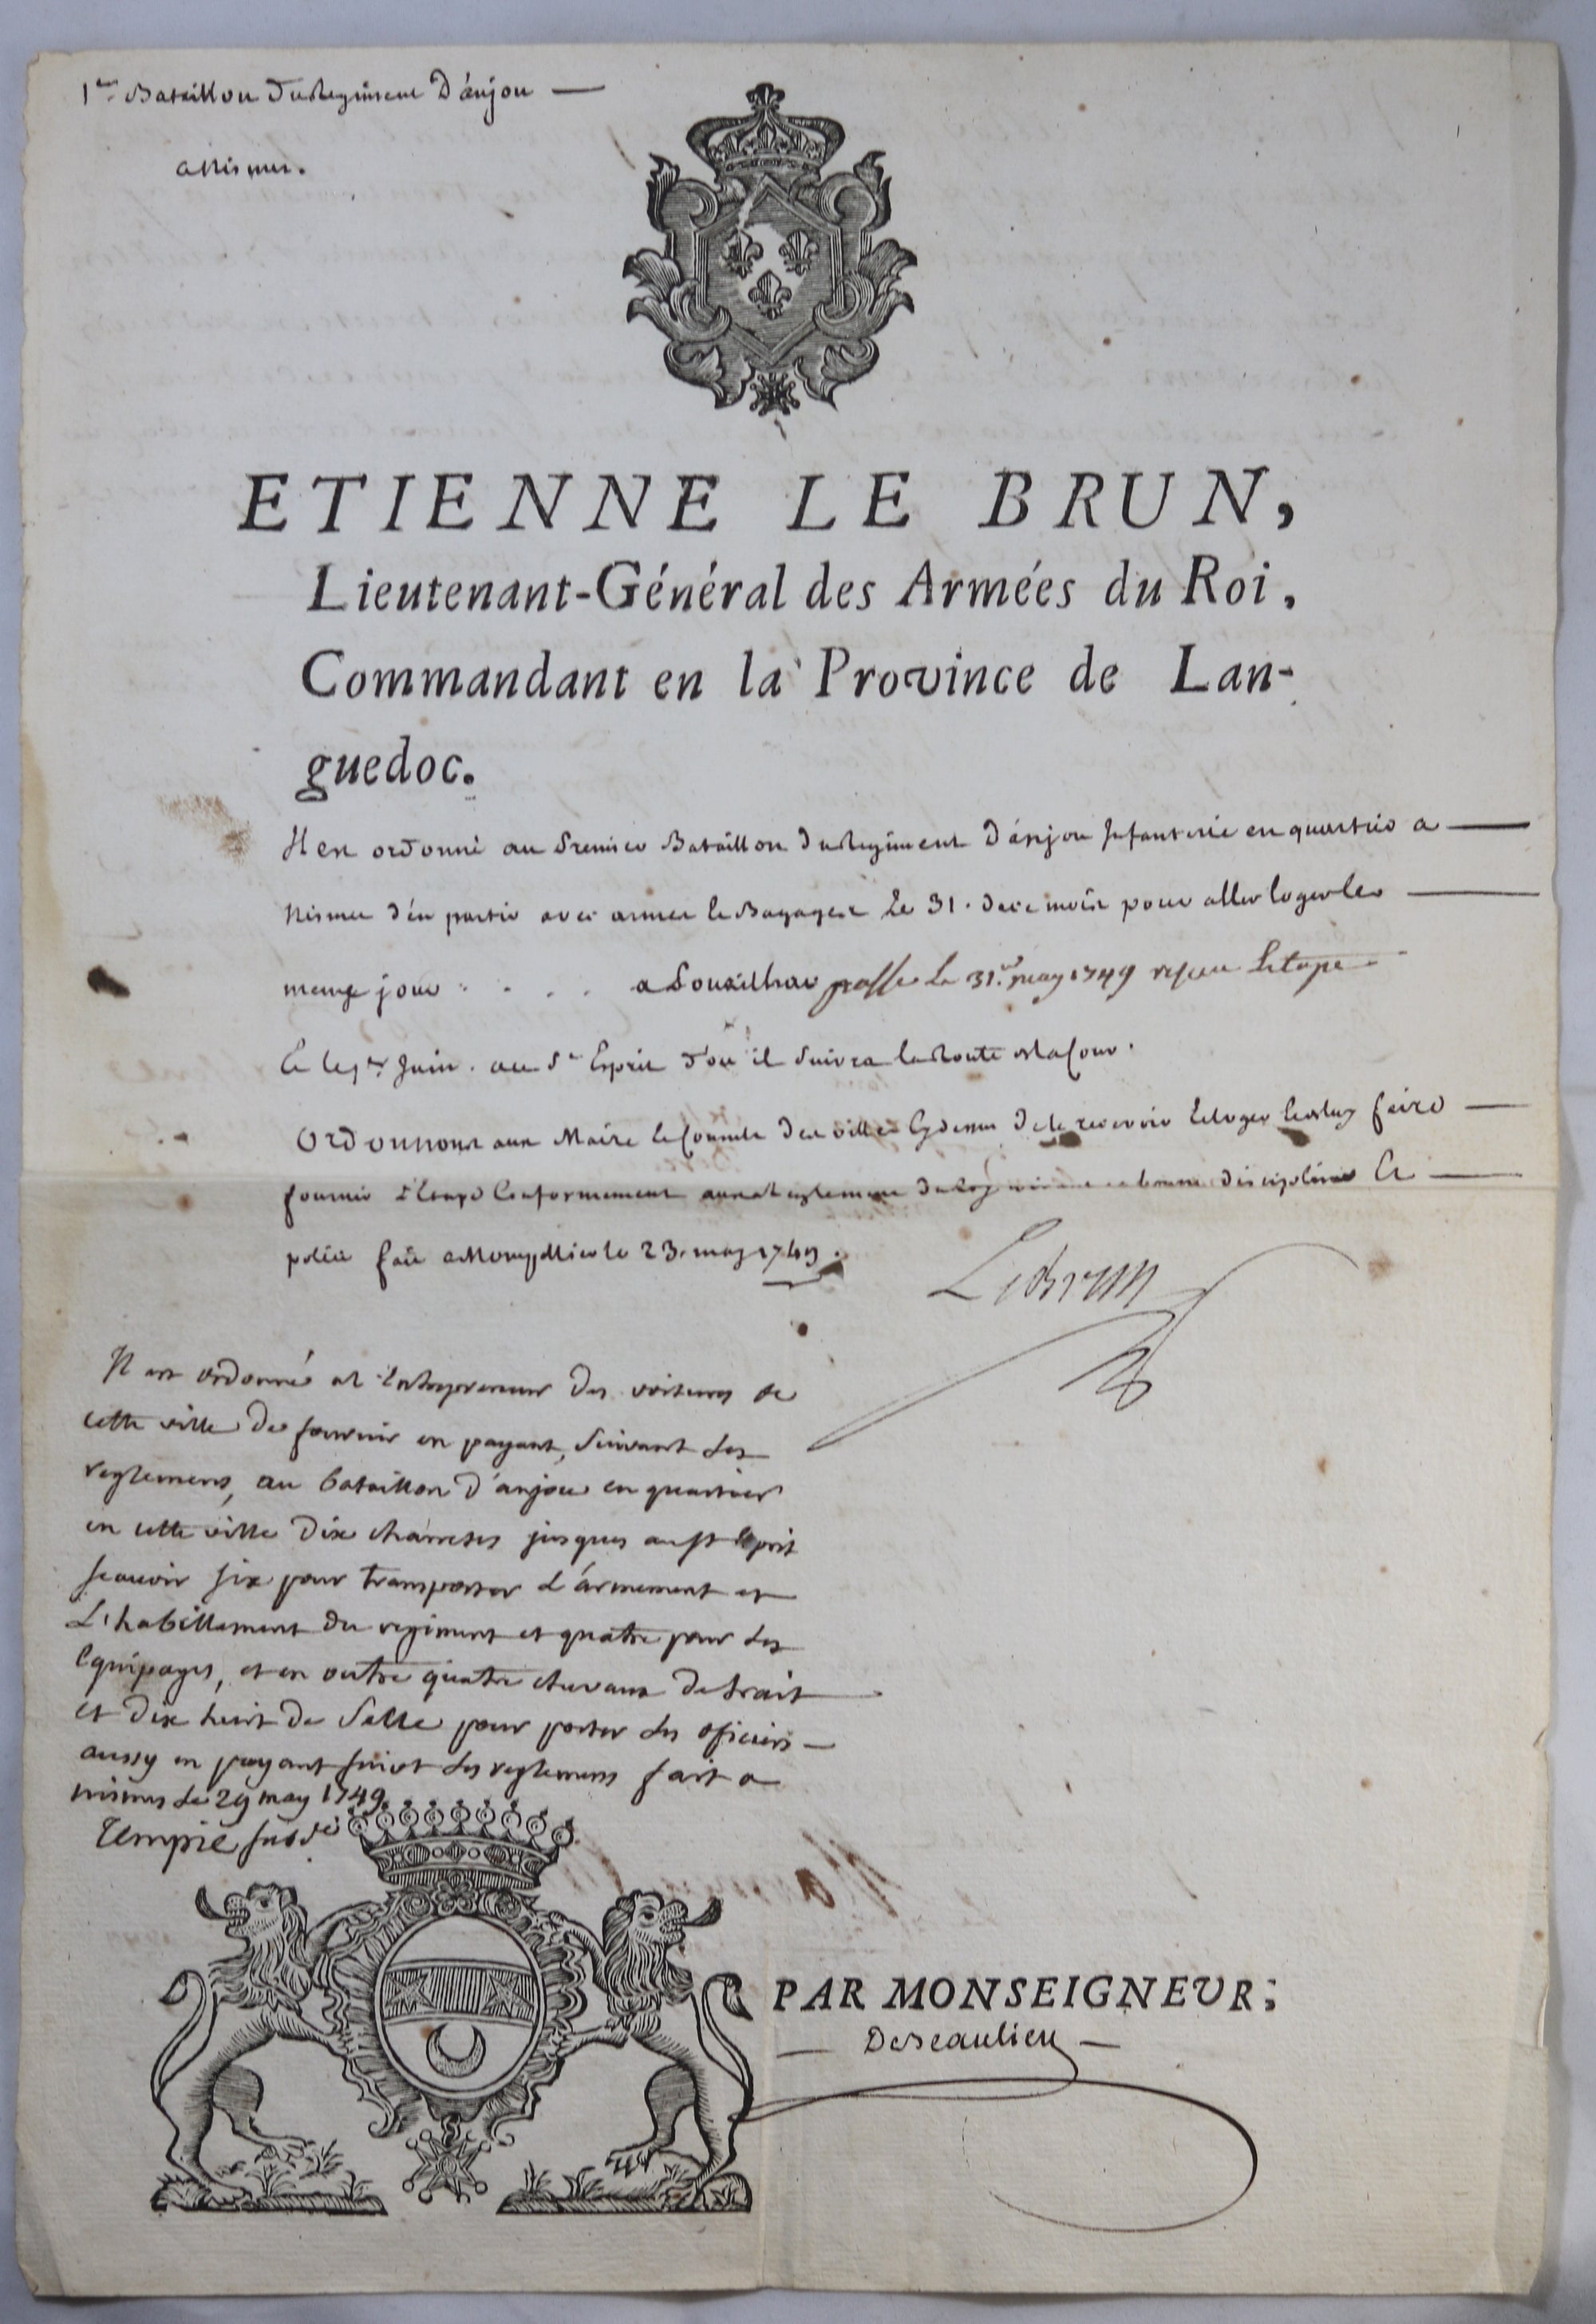 1er Bataillon du Regiment D'anjou
a Nismes.
ETIENNE LE BRUN,
Lieutenant-Général des Armées du Roi,
Commandant en la Province de Lan-
guedoc.
Il est ordonné au Premier Bataillon du Regiment D'anjou Infanterie en quartier a
Nismes d'en partir avec armes & Bagages Le 31. de ce mois pour aller loger le
meme jour . . . . a Pouzilhac passé le 31e may 1749 reçeu Letape
Et le 1er Juin. au St Esprit d'ou il suivra la Route de la Cour.
Ordonnons aux Maire & Consuls des villes Cydessus de le recevoir & loger & faire
fournir L'Etape Conformement aux Reglemens du Roy bonne discipline &
police fait a Montpellier le 23. may 1749.
LeBrun
Il est ordonné a L'Entrepreneur des voitures de
cette ville de fournir en payant, suivant les
reglemens, au bataillon d'anjou en quartier
en cette ville dix charretes jusques au St Esprit
scavoir six pour transporter L'armement et
L'habillement du regiment et quatre pour les
Equipages, et en outre quatre chevaux de trait
et dix huit de Selle pour porter les oficiers
aussy en payant suivt les reglemens fait a
nismes le 29 may 1749.
Tempié subdé
PAR MONSEIGNEUR;
DeBeaulieu